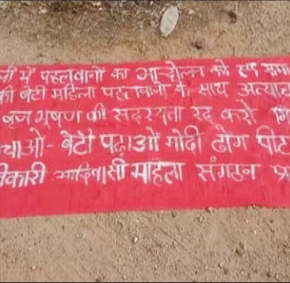 में पहलवानों का आन्दोलन को
की बेटी महिला पहलवानों के साथ अत्याचा
बृज भूषण की सदस्यता रद्द करो
चाओ - बेटी पढ़ाओ मोदी ढोंग पीट
कारी आदिवासी महिला संगठन